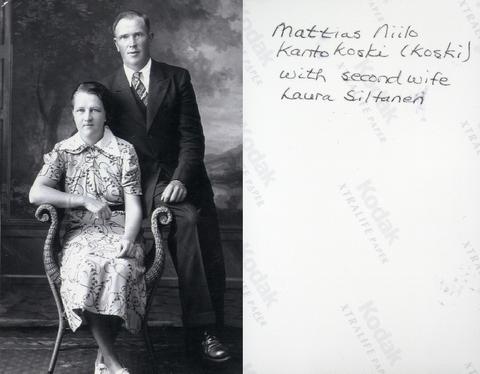 Mattias Niilo
Kanto Koski (Koski)
with second wife
Laura Siltanen
Kodak
XTRALIFE PAPER
Kodak
XTRALIFE PAPER
Kodak
XTRALIFE PAPER
Kodak
XTRALIFE PAPER
Kodak
XTRALIFE PAPER